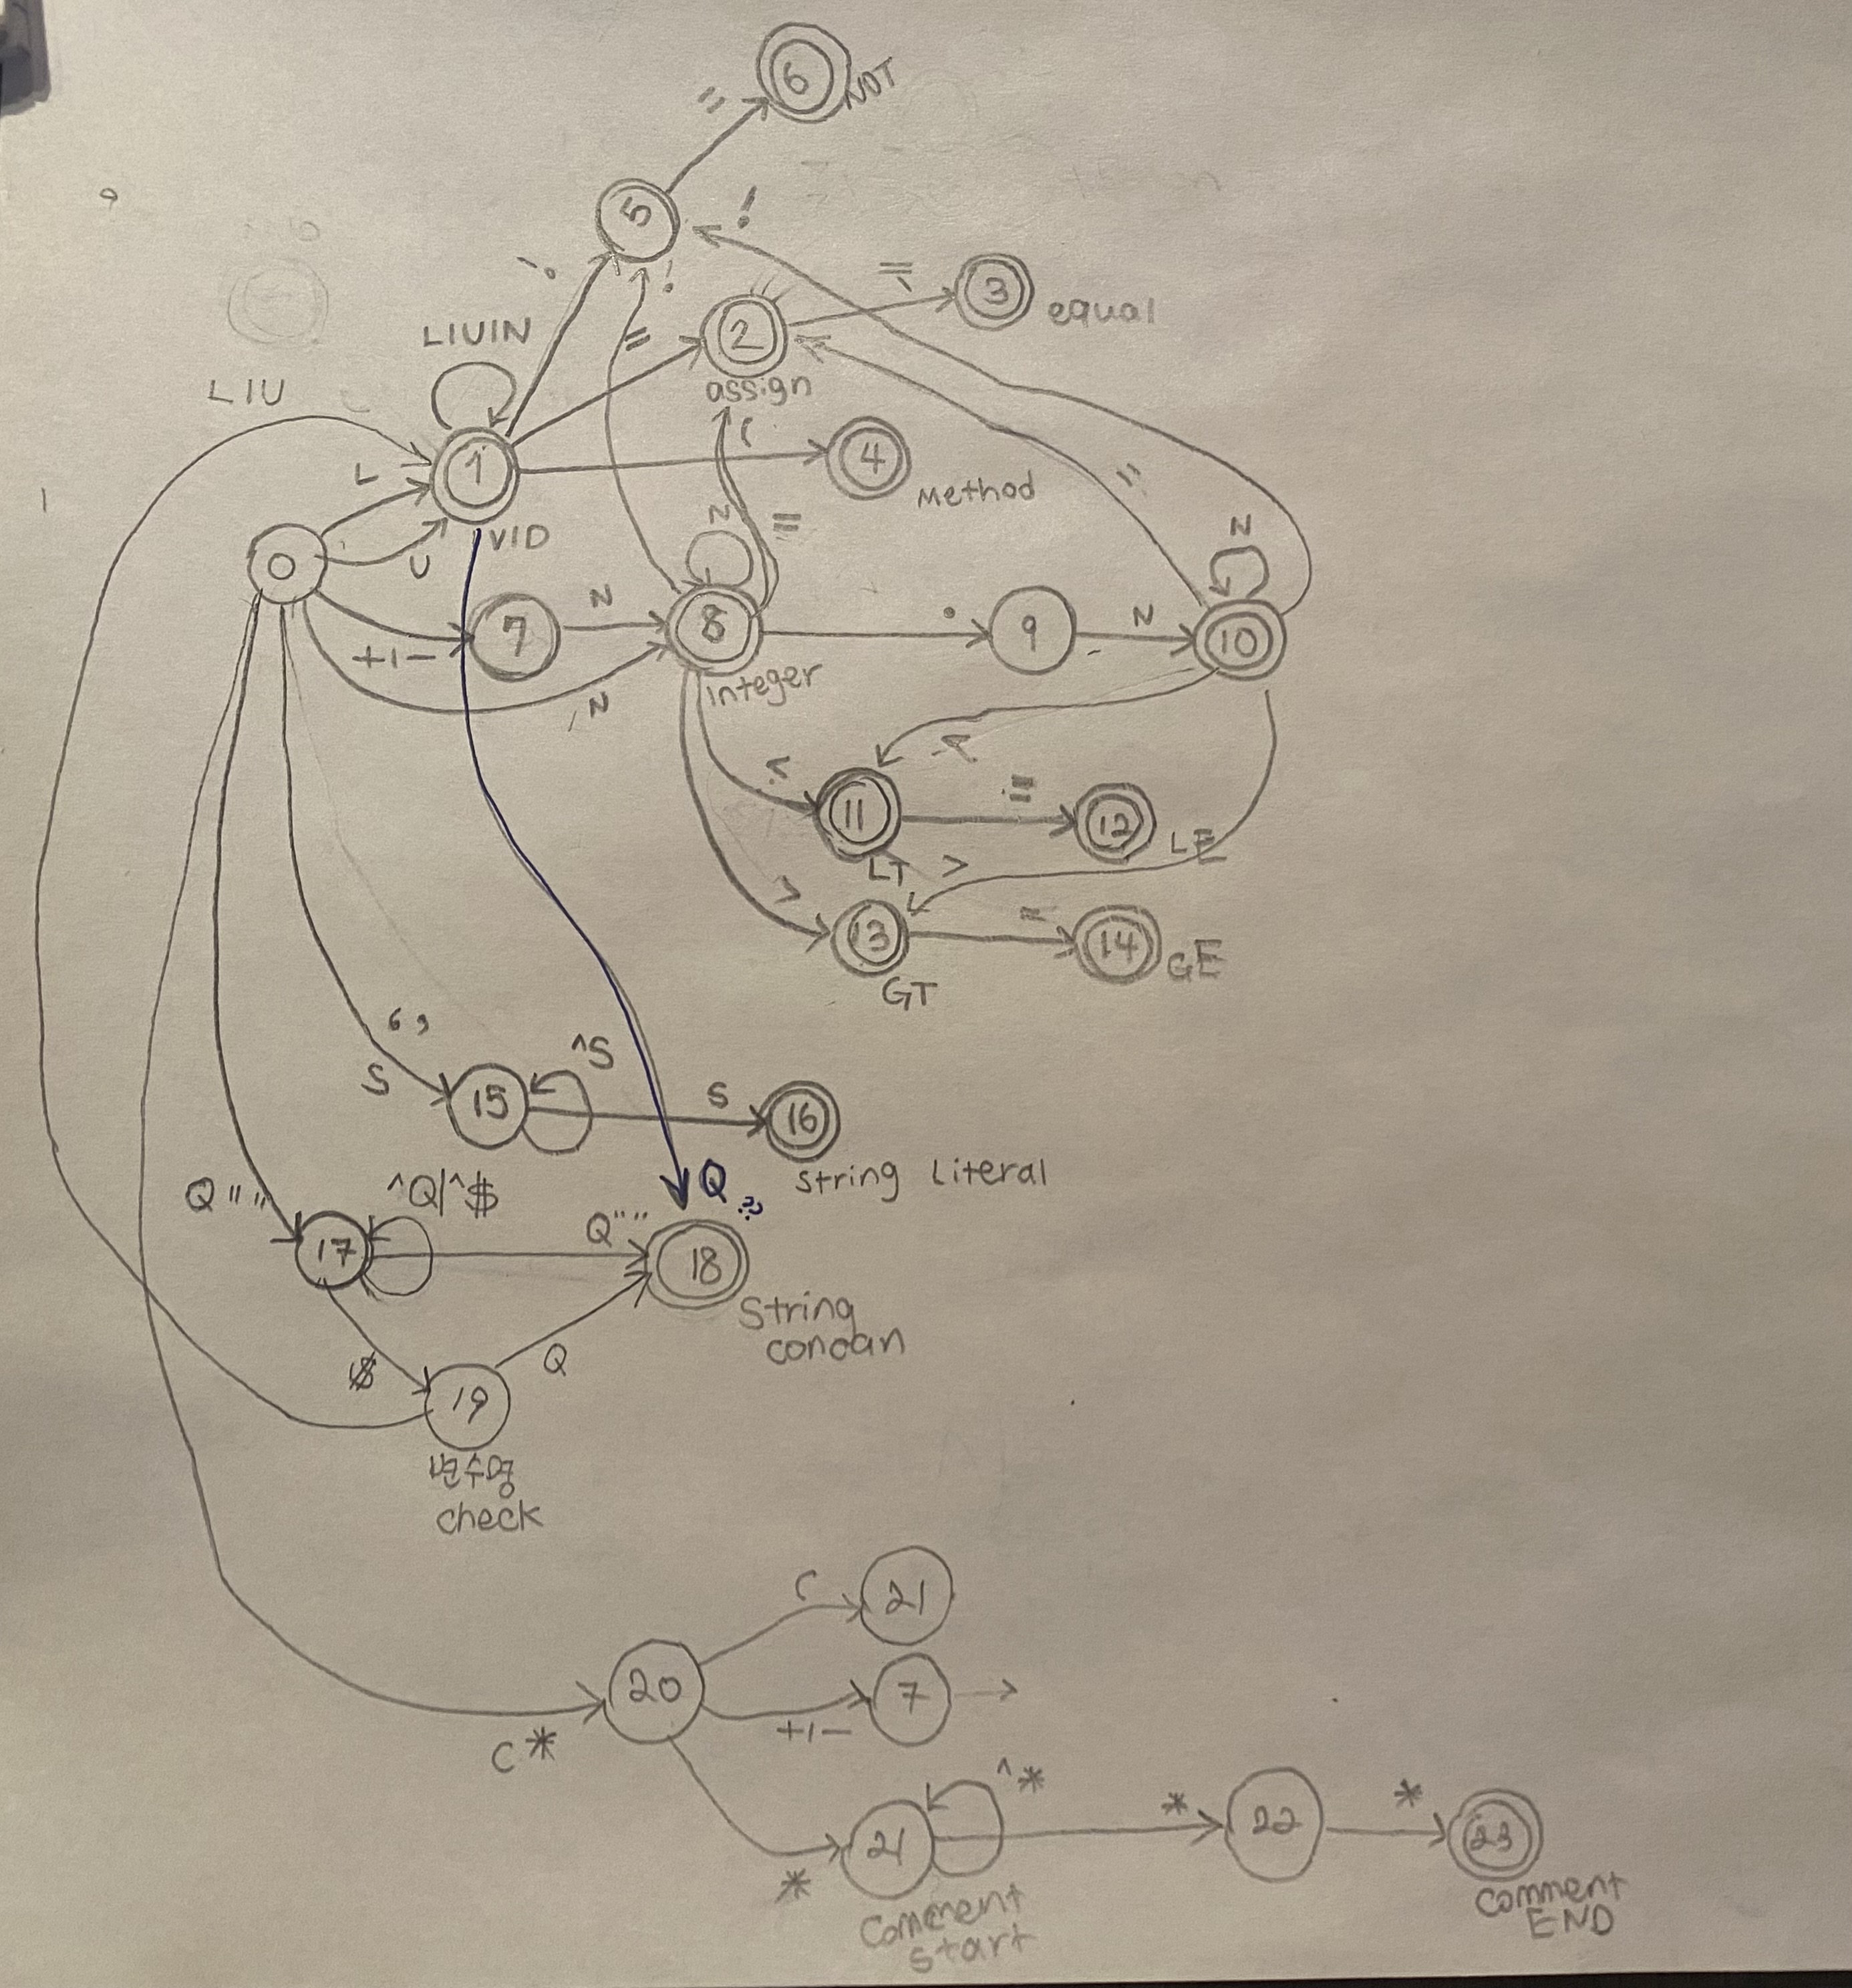 6
NOT
=
5
!
!
!
=
3
equal
2
assign
=
LIUIN
LIU
1
VID
L
U
(
4
Method
=
0
+1-
7
N
N
8
Integer
N
=
.
9
N
10
N
<
<
11
LT
=
12
LE
>
>
13
GT
=
14
GE
S
15
^S
S
16
String Literal
Q""
17
^Q|^$
Q""
Q
18
String
concan
$
19
Q
변수명
check
C*
20
C
21
+1-
7
*
21
^*
Comment
start
*
22
*
23
Comment
END